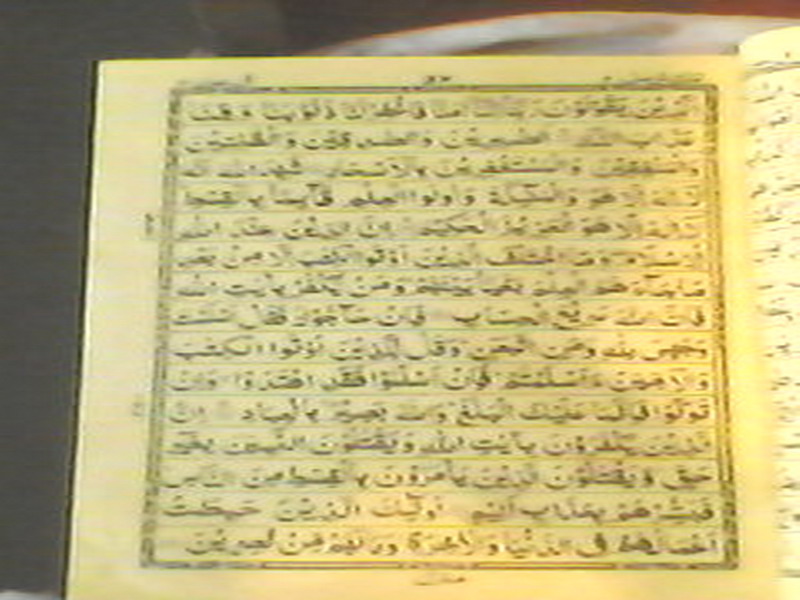 الَّذِينَ يَقُولُونَ رَبَّنَا إِنَّنَا آمَنَّا فَاغْفِرْ لَنَا ذُنُوبَنَا وَقِنَا
عَذَابَ النَّارِ الصّٰبِرِينَ وَالصّٰدِقِينَ وَالْقٰنِتِينَ
وَالْمُنْفِقِينَ وَالْمُسْتَغْفِرِينَ بِالْأَسْحَارِ شَهِدَ اللَّهُ أَنَّهُ
لَا إِلٰهَ إِلَّا هُوَ وَالْمَلٰئِكَةُ وَأُولُوا الْعِلْمِ قَائِمًا بِالْقِسْطِ
لَا إِلٰهَ إِلَّا هُوَ الْعَزِيزُ الْحَكِيمُ إِنَّ الدِّينَ عِنْدَ اللَّهِ
الْإِسْلَامُ وَمَا اخْتَلَفَ الَّذِينَ أُوتُوا الْكِتٰبَ إِلَّا مِنْ بَعْدِ
مَا جَاءَهُمُ الْعِلْمُ بَغْيًا بَيْنَهُمْ وَمَنْ يَكْفُرْ بِآيٰتِ اللَّهِ
فَإِنَّ اللَّهَ سَرِيعُ الْحِسَابِ فَإِنْ حَاجُّوكَ فَقُلْ أَسْلَمْتُ
وَجْهِيَ لِلَّهِ وَمَنِ اتَّبَعَنِ وَقُلْ لِلَّذِينَ أُوتُوا الْكِتٰبَ
وَالْأُمِّيِّينَ ءَأَسْلَمْتُمْ فَإِنْ أَسْلَمُوا فَقَدِ اهْتَدَوْا وَإِنْ
تَوَلَّوْا فَإِنَّمَا عَلَيْكَ الْبَلٰغُ وَاللَّهُ بَصِيرٌ بِالْعِبَادِ إِنَّ
الَّذِينَ يَكْفُرُونَ بِآيٰتِ اللَّهِ وَيَقْتُلُونَ النَّبِيِّينَ بِغَيْرِ
حَقٍّ وَيَقْتُلُونَ الَّذِينَ يَأْمُرُونَ بِالْقِسْطِ مِنَ النَّاسِ
فَبَشِّرْهُمْ بِعَذَابٍ أَلِيمٍ أُولٰئِكَ الَّذِينَ حَبِطَتْ
أَعْمَالُهُمْ فِي الدُّنْيَا وَالْآخِرَةِ وَمَا لَهُمْ مِنْ نٰصِرِينَ